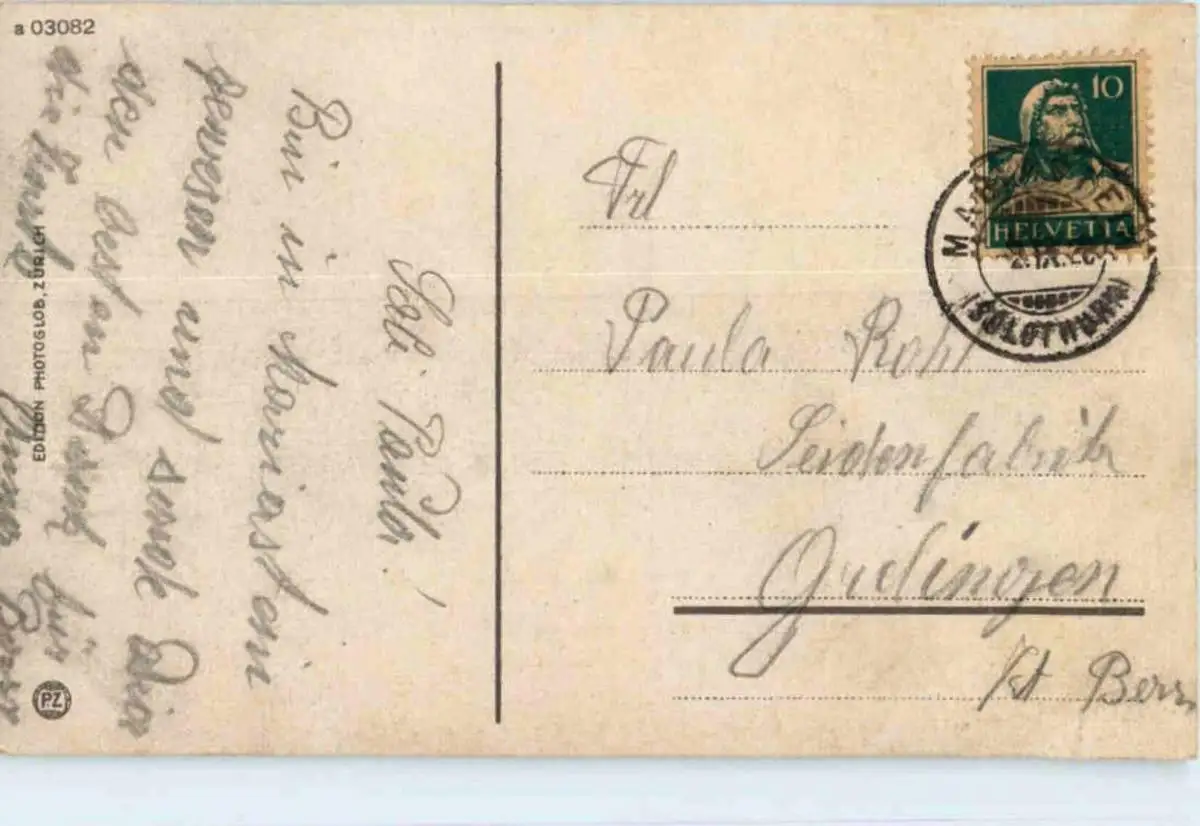 a 03082
Sali Paula!
Bin in Mariastein
gewesen und sende Dir
den besten Dank für
die
EDITION PHOTOGLOB, ZÜRICH
P.Z
10
HELVETIA
MARIASTEIN
(SOLOTHURN)
Frl
Paula Rohr
Seidenfabrik
Gidingen
Kt Bern